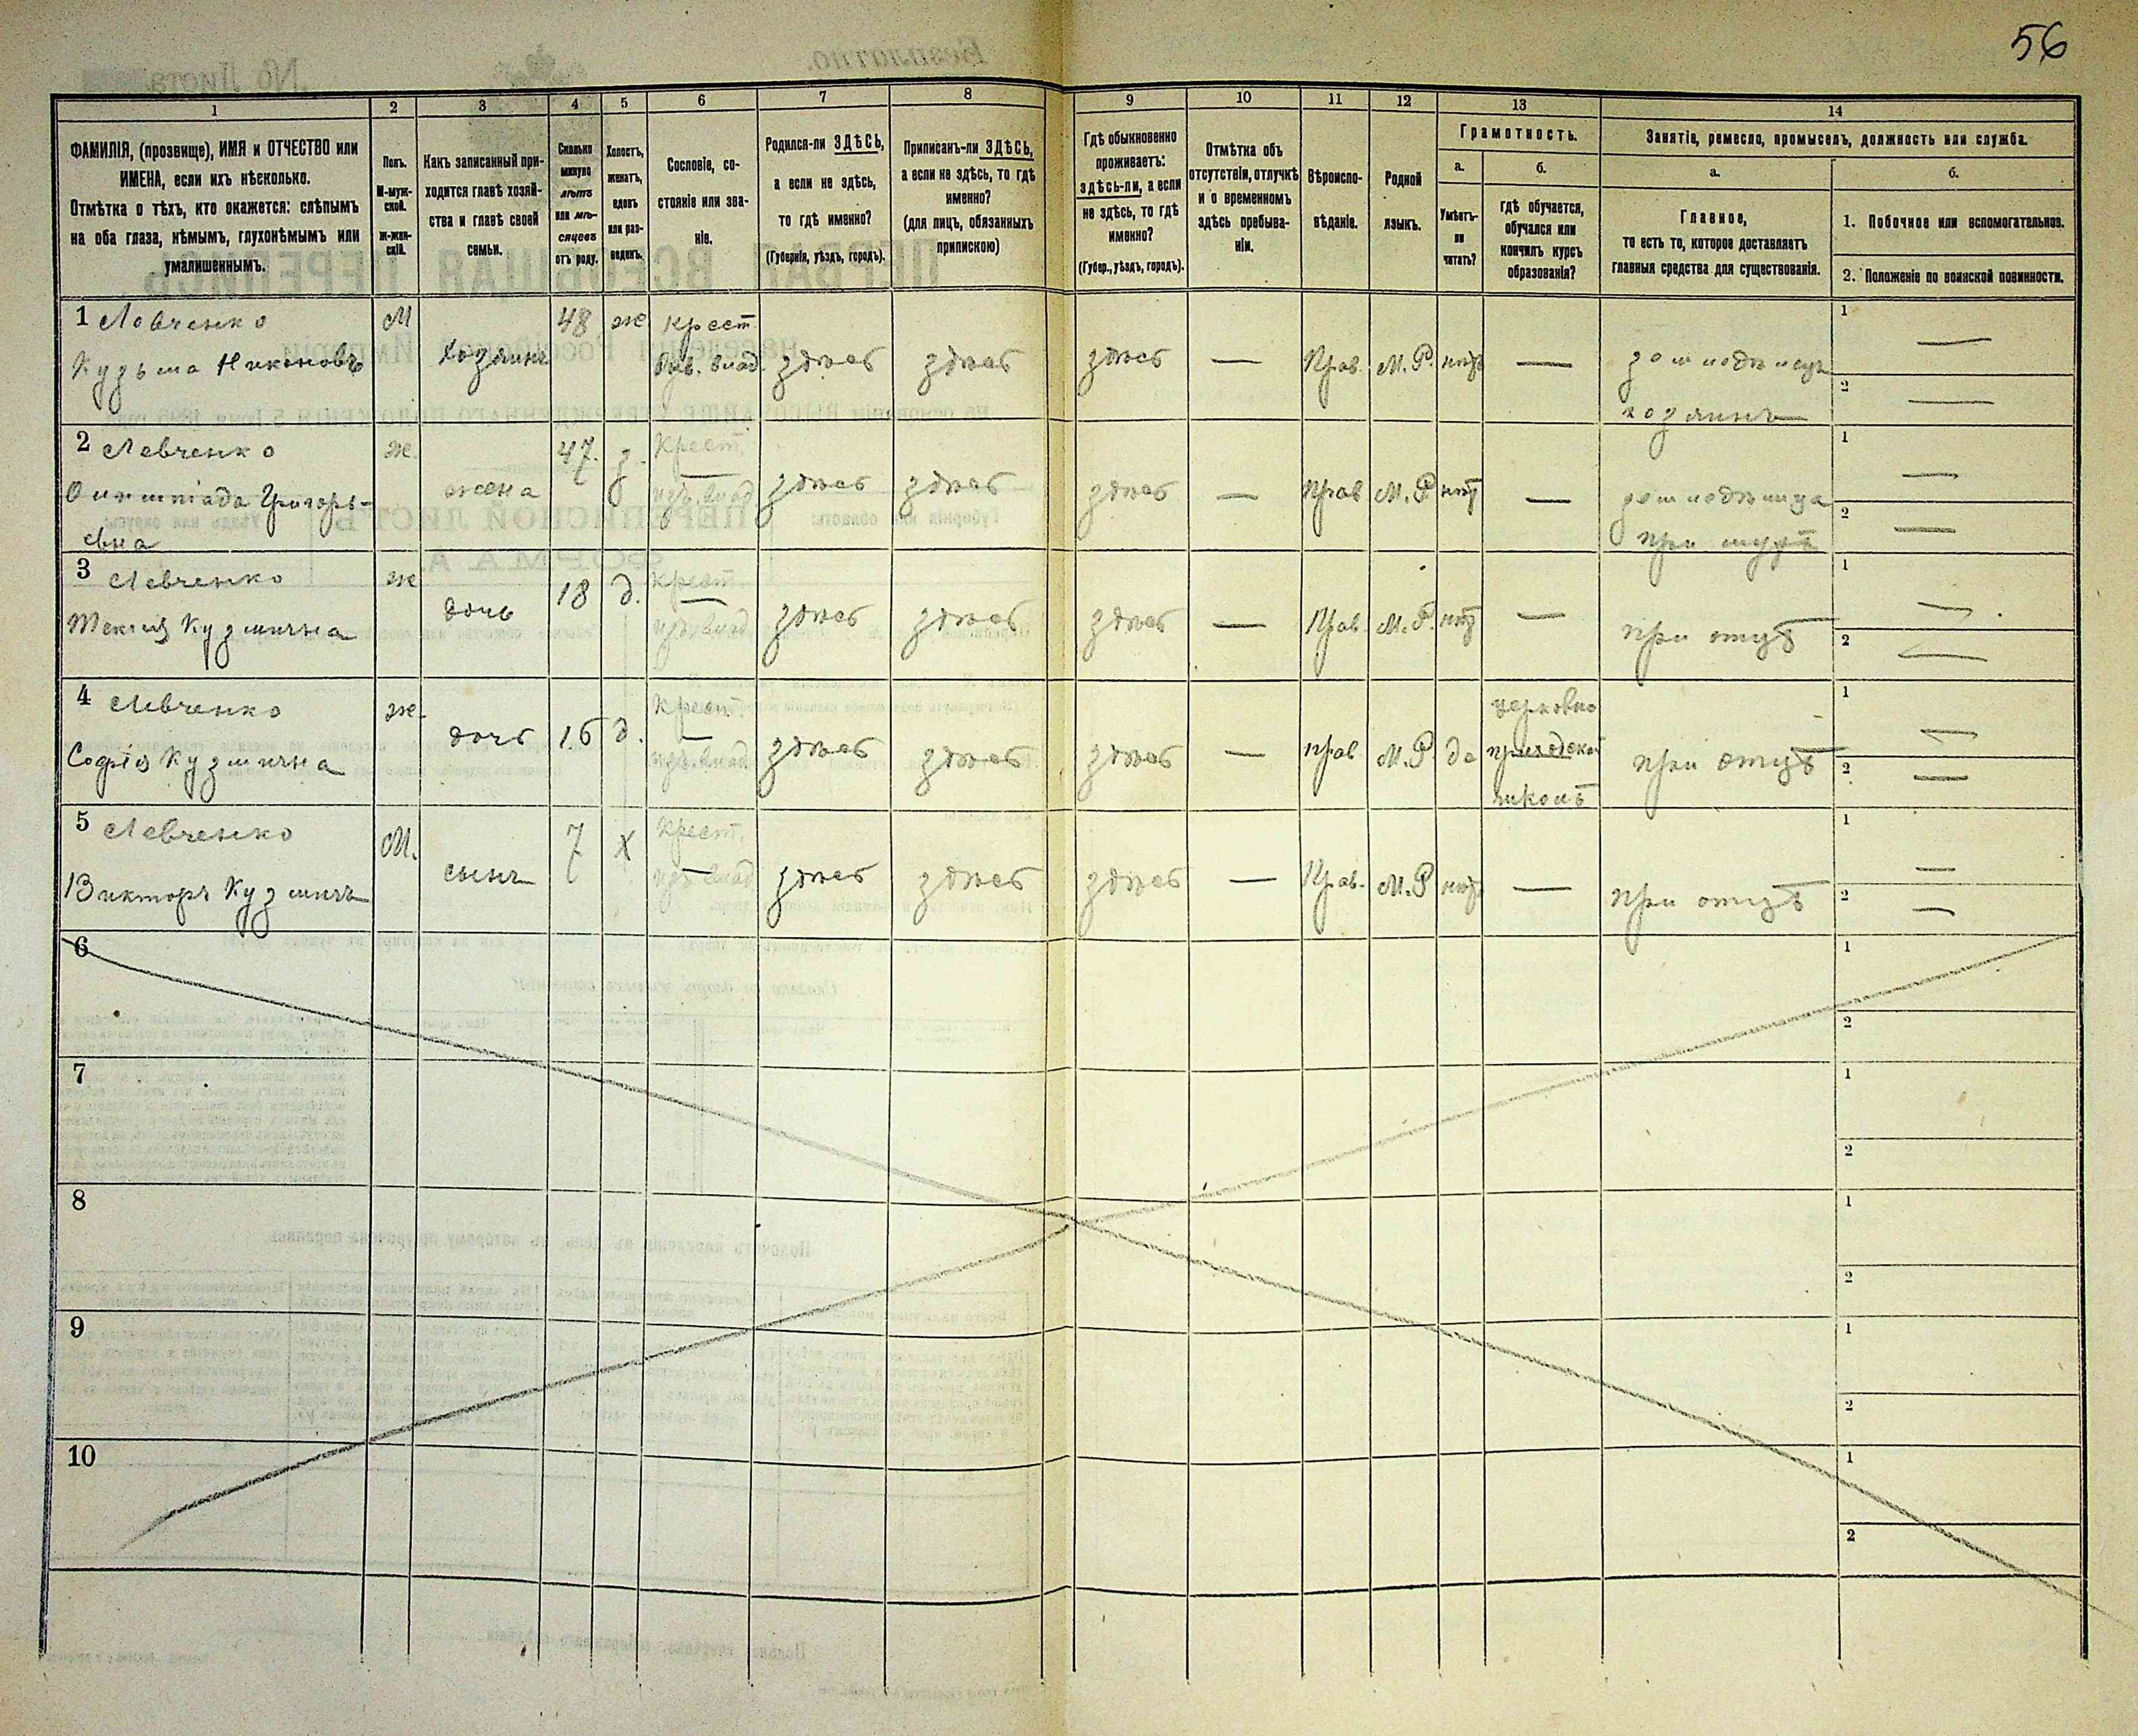 56
1
2
3
4
5
6
7
8
9
10
11
12
13
14
ФАМИЛІЯ, (прозвище), ИМЯ и ОТЧЕСТВО или
ИМЕНА, если ихъ нѣсколько.
Отмѣтка о тѣхъ, кто окажется: слѣпымъ
на оба глаза, нѣмымъ, глухонѣмымъ или
умалишеннымъ.
Полъ.
М-муж-
ской.
ж-жен-
скій.
Какъ записанный при-
ходится главѣ хозяй-
ства и главѣ своей
семьи.
Сколько
минуло
лѣтъ
или мѣ-
сяцевъ
отъ роду.
Холостъ,
женатъ,
вдовъ
или раз-
веденъ.
Сословіе, со-
стояніе или зва-
ніе.
Родился-ли ЗДѢСЬ,
а если не здѣсь,
то гдѣ именно?
(Губернія, уѣздъ, городъ).
Приписанъ-ли ЗДѢСЬ,
а если не здѣсь, то гдѣ
именно?
(для лицъ, обязанныхъ
припискою)
Гдѣ обыкновенно
проживаетъ:
здѣсь-ли, а если
не здѣсь, то гдѣ
именно?
(Губер., уѣздъ, городъ).
Отмѣтка объ
отсутствіи, отлучкѣ
и о временномъ
здѣсь пребыва-
ніи.
Вѣроиспо-
вѣданіе.
Родной
языкъ.
Грамотность.
а.
б.
Умѣетъ-
ли
читать?
гдѣ обучается,
обучался или
кончилъ курсъ
образованія?
Занятіе, ремесло, промыселъ, должность или служба.
а.
б.
Главное,
то есть то, которое доставляетъ
главныя средства для существованія.
1. Побочное или вспомогательное.
2. Положеніе по воинской повинности.
1 Левченко
Кузьма Никоновъ
М
Хозяинъ
48
ж
Крест.
влад.
здѣсь
здѣсь
здѣсь
—
Прав.
М.Р.
нѣтъ
—
хозяинъ
1 —
2 —
2 Левченко
Олимпіада Григорь-
евна
ж.
жена
47.
з.
Крест.
—
влад
здѣсь
здѣсь
здѣсь
—
Прав
М.Р
нѣт
—
при мужѣ
1 —
2 —
3 Левченко
Текля Кузминична
ж
дочь
18
д.
Крест.
—
влад
здѣсь
здѣсь
здѣсь
—
Прав.
М.Р.
нѣт
—
при отцѣ
1 —
2 —
4 Левченко
Софія Кузминична
ж.
дочь
16
д.
Крест.
—
влад
здѣсь
здѣсь
здѣсь
—
прав
М.Р
да
церковно
приходской
школѣ
при отцѣ
1 —
2 —
5 Левченко
Викторъ Кузмичъ
М.
сынъ
7
х
Крест.
влад
здѣсь
здѣсь
здѣсь
—
Прав.
М.Р
нѣтъ
—
при отцѣ
1 —
2 —
6
1
2
7
1
2
8
1
2
9
1
2
10
1
2